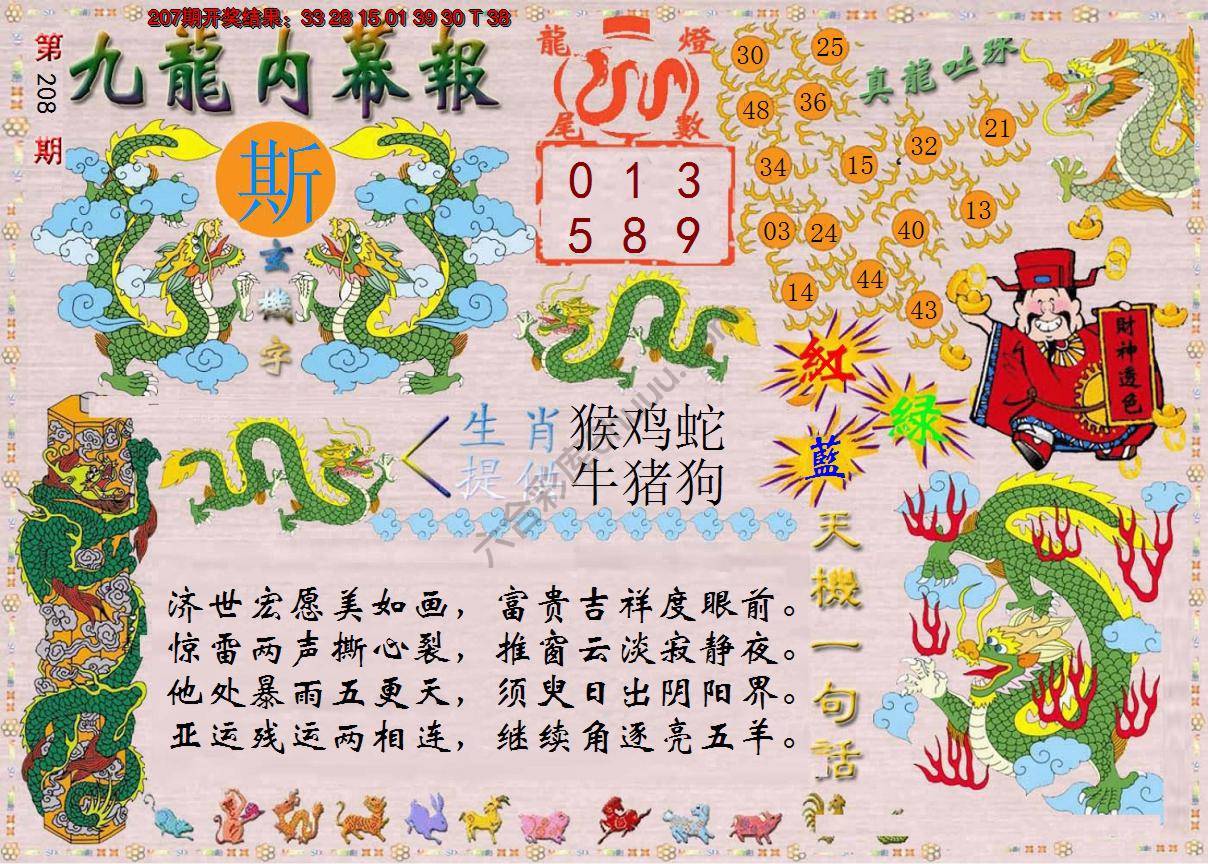 207期开奖结果：33 28 15.01 39 30 T 38
第208期
九龍内幕報
斯
玄機字
龍燈尾數
0 1 3
5 8 9
真龍吐珠
30 25
48 36
34 15 32 21
03 24 40 13
14 44 43
財神透色
紅
綠
藍
生肖 猴鸡蛇
提供 牛猪狗
天機一句话
济世宏愿美如画，富贵吉祥度眼前。
惊雷两声撕心裂，推窗云淡寂静夜。
他处暴雨五更天，须臾日出阴阳界。
亚运残运两相连，继续角逐亮五羊。